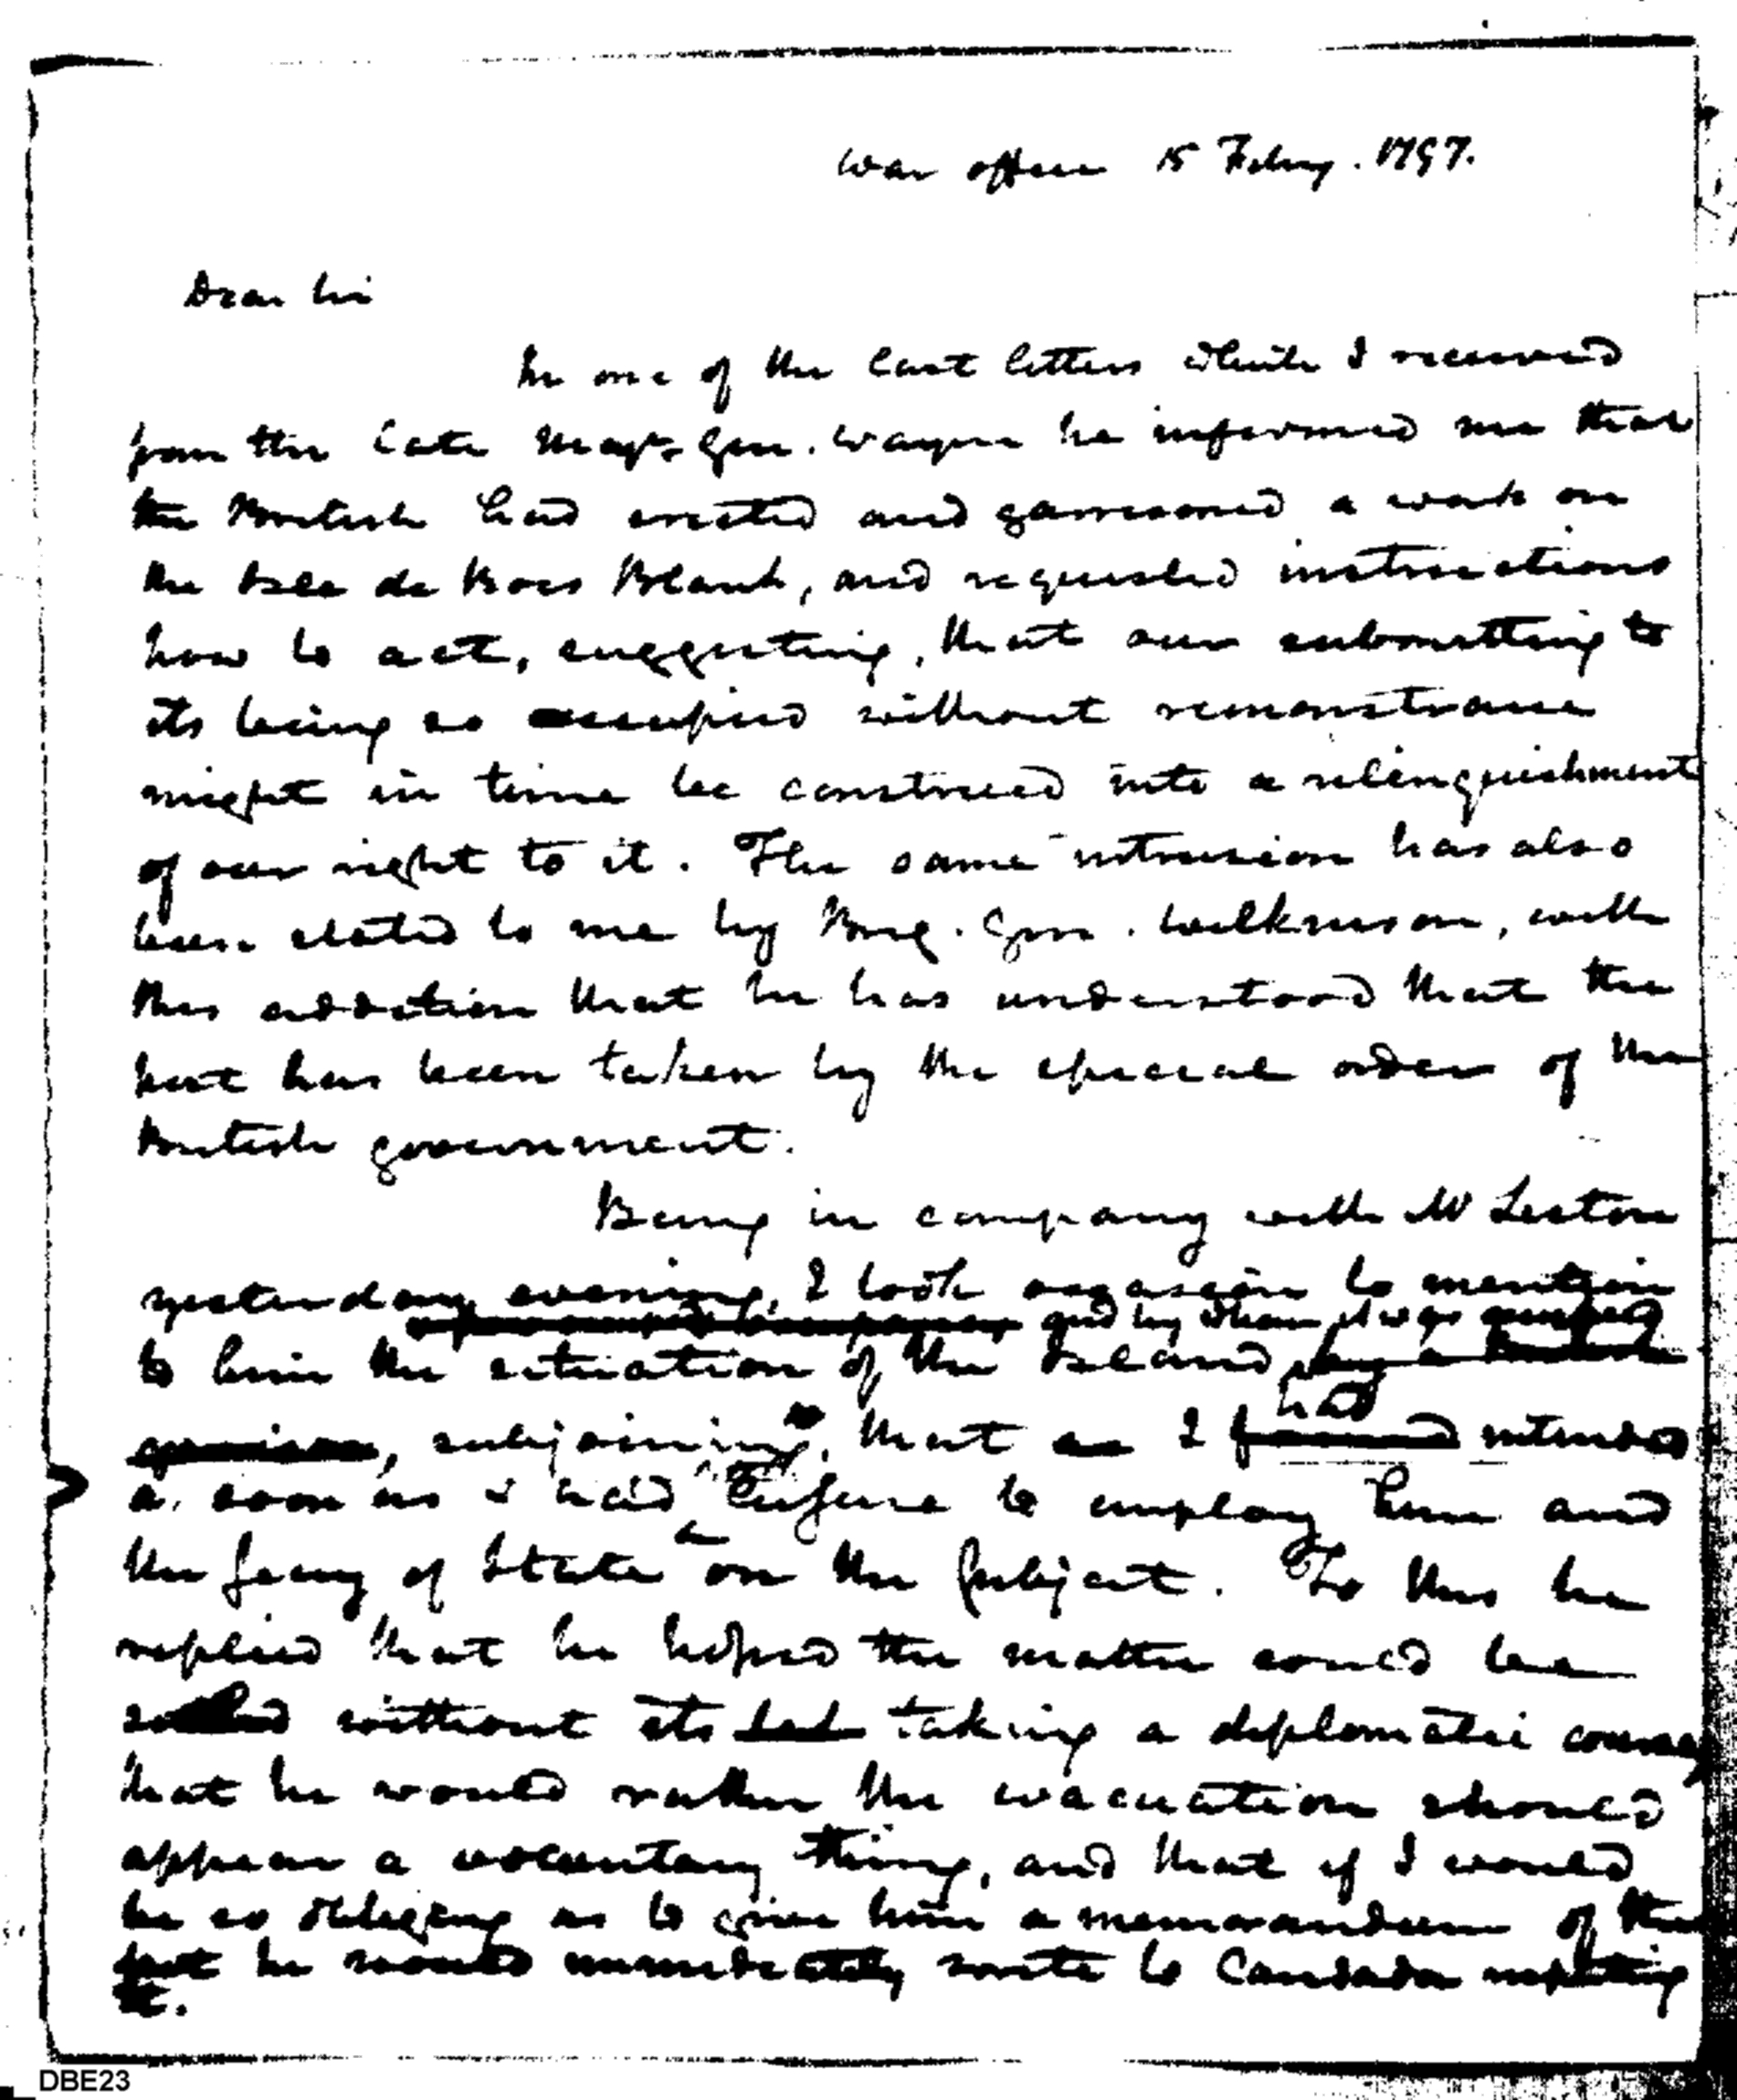 War office 15 Febry. 1797.
Dear Sir
In one of the last letters which I received
from the late Majr. Gen. Wayne he informed me that
the British had erected and garrisoned a work on
the Isle de Bois Blank, and requested instructions
how to act, suggesting, that our submitting to
its being so occupied without remonstrance
might in time be construed into a relinquishment
of our right to it. The same intrusion has also
been stated to me by Brig. Gen. Wilkinson, with
this addition that he has understood that the
post has been taken by the special order of the
British government.
Being in company with Mr Liston
yesterday evening, I took occasion to mention
and by whom it was
to him the situation of the Island by a British
garrison, subjoining, that as I found had intended
as soon as I had leisure to employ him and
the Secy of State on the subject. To this he
replied that he hoped the matter could be
without its taking a diplomatic course,
that he would rather the evacuation should
appear a voluntary thing, and that if I would
be so obliging as to give him a memorandum of the
fact he would immediately write to Candada respecting
it.
DBE23